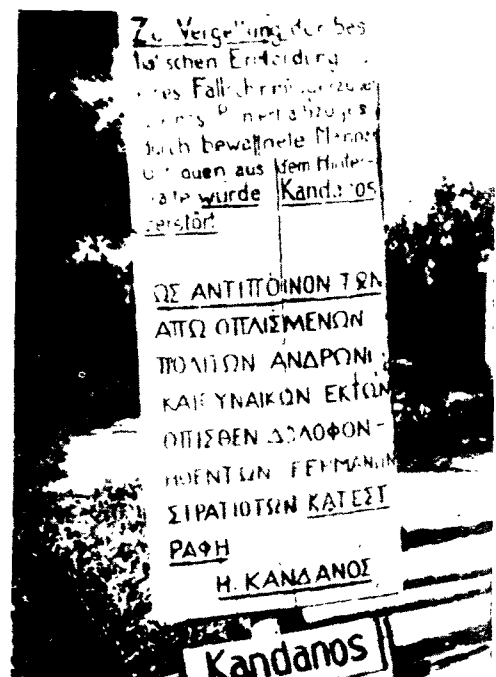 Zur Vergeltung der bes
tialischen Ermordung
eines
durch bewaffnete Männer
u. Frauen aus dem Hinter-
halte wurde Kandanos
zerstört
ΩΣ ΑΝΤΙΠΟΙΝΟΝ ΤΩΝ
ΑΠΩ ΟΠΛΙΣΜΕΝΩΝ
ΠΟΛΙΤΩΝ ΑΝΔΡΩΝ
ΚΑΙ ΓΥΝΑΙΚΩΝ ΕΚ ΤΩΝ
ΟΠΙΣΘΕΝ ΔΟΛΟΦΟΝ-
ΗΘΕΝΤΩΝ ΓΕΡΜΑΝΩΝ
ΣΤΡΑΤΙΟΤΩΝ ΚΑΤΕΣΤ
ΡΑΦΗ
Η. ΚΑΝΔΑΝΟΣ
Kandanos